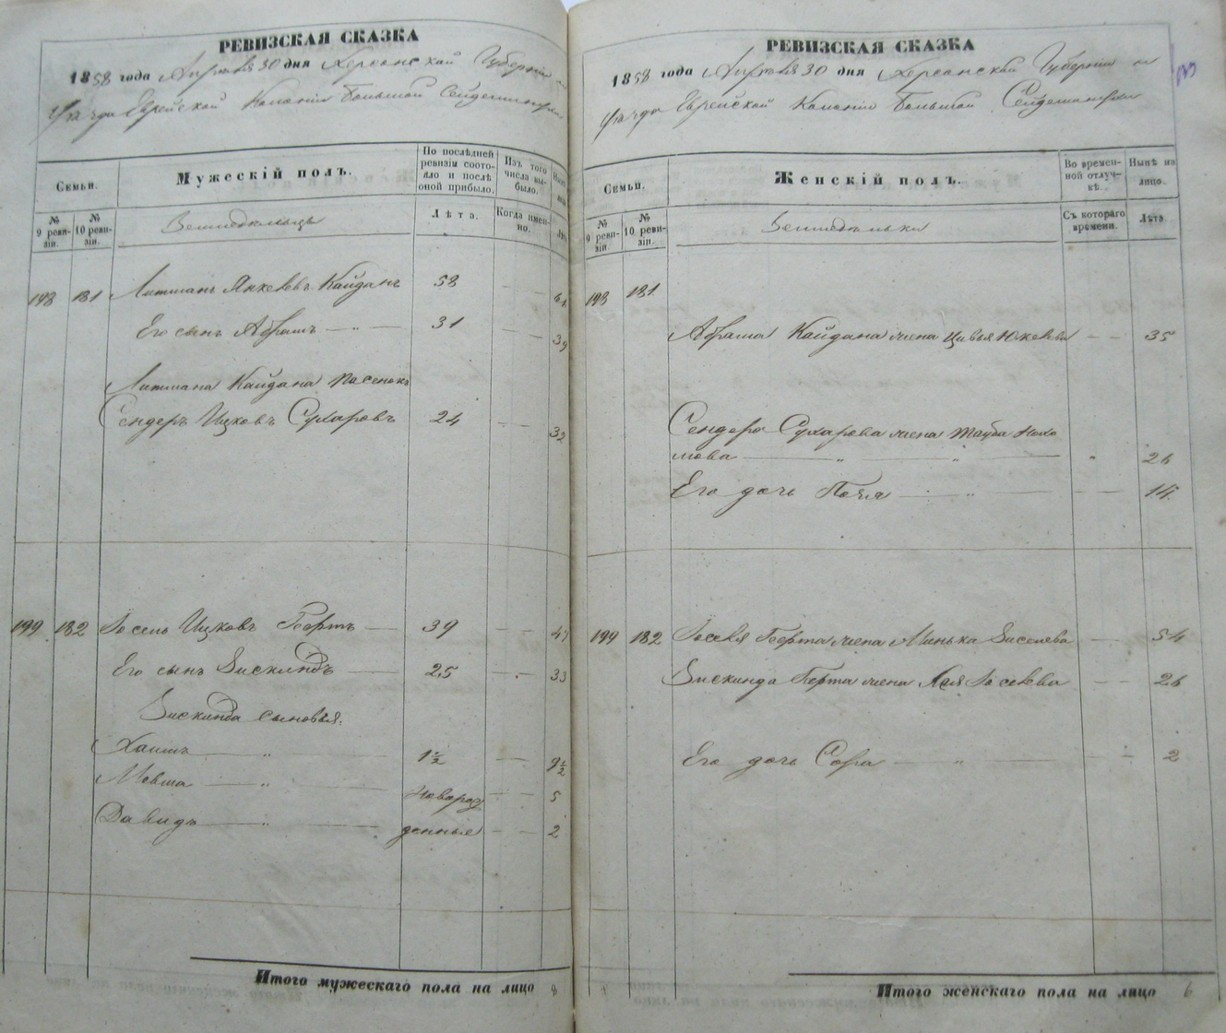 РЕВИЗСКАЯ СКАЗКА
1858 года Апреля 30 дня Херсонской Губернии и
уѣзда Еврейской Колоніи Большой Сейдеменухи
Семьи.
Мужескій полъ.
По послѣдней ревизіи состояло и послѣ оной прибыло.
Изъ того числа выбыло.
№ 9 ревизіи.
№ 10 ревизіи.
Лѣта.
Когда именно.
198 181 Литманъ Янкелевъ Кайданъ 58
Его сынъ Абрамъ 31 39
Литмана Кайдана пасенокъ
Сендеръ Ицковъ Сухаровъ 24 32
199 182 Іосель Ицковъ Бортъ 39 47
Его сынъ Зискиндъ 25 33
Зискинда сыновья:
Хаимъ 1½ 9½
Мовша новорож 5
Давидъ денные 2
Итого мужескаго пола на лицо 8
РЕВИЗСКАЯ СКАЗКА
1858 года Апреля 30 дня Херсонской Губерніи и
уѣзда Еврейской Колоніи Большой Сейдеменухи
Семьи.
Женскій полъ.
Во временной отлучкѣ.
Нынѣ на лицо.
№ 9 ревизіи.
№ 10 ревизіи.
Съ котораго времени.
Лѣта.
198 181
Абрама Кайдана жена Цивья 35
Сендера Сухарова жена Тауба Нахи
мова 26
Его дочь 14
199 182 Іоселя Борта жена Минька Зиселева 54
Зискинда Борта жена Лея Іоселева 26
Его дочь Сора 2
Итого женскаго пола на лицо 6